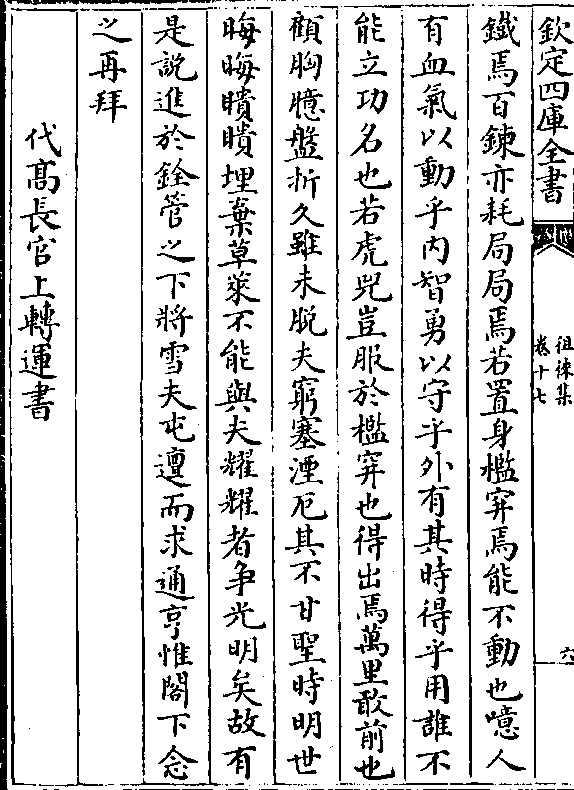 欽定四庫全書
徂徠集
卷十七
六
鐵焉百鍊亦耗局局焉若置身檻穽焉能不動也噫人
有血氣以動乎内智勇以守乎外有其時得乎用誰不
能立功名也若虎兕豈服於檻穽也得出焉萬里敢前也
顧胸臆盤折久雖未脱夫窮塞湮厄其不甘聖時明世
晦晦瞶瞶埋棄草萊不能與夫耀耀者争光明矣故有
是説進於銓管之下將雪夫屯邅而求通亨惟閣下念
之再拜
代髙長官上轉運書